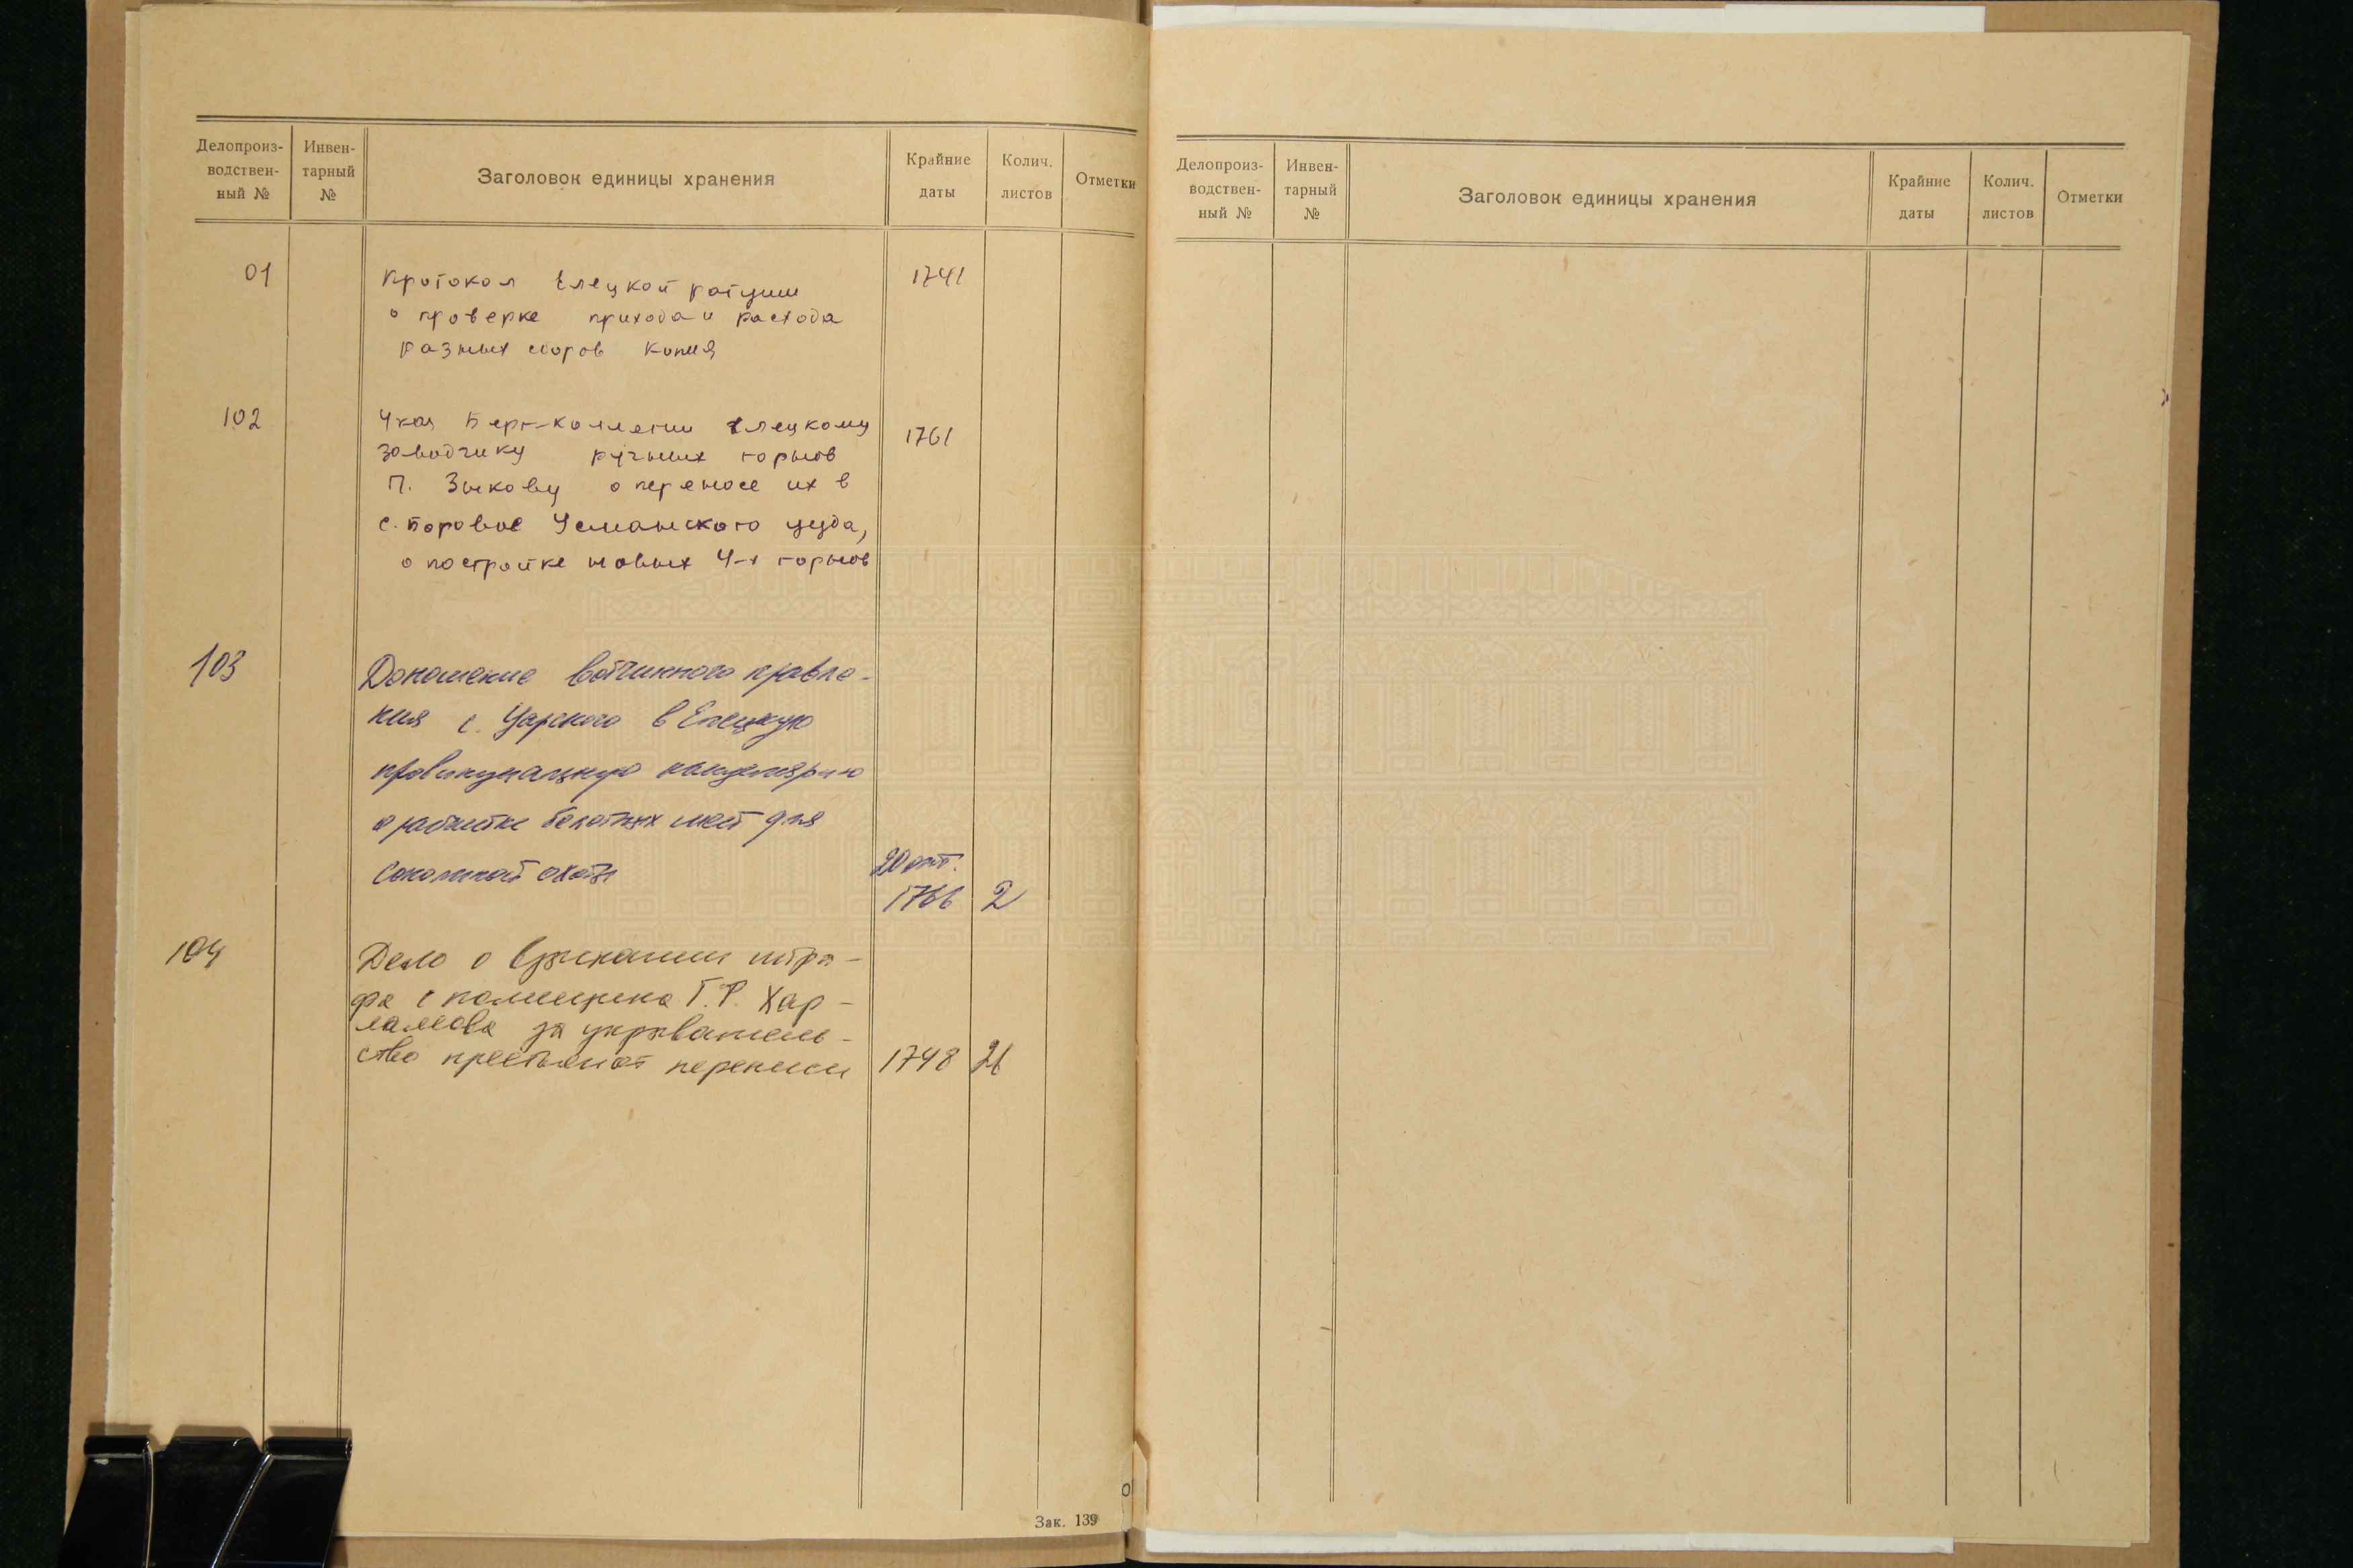 Делопроиз-
водствен-
ный №
Инвен-
тарный
№
Заголовок единицы хранения
Крайние
даты
Колич.
листов
Отметки
01
Протокол Елецкой ратуши
1741
о проверке прихода и расхода
разных сборов Копия
102
Указ Берг-Коллегии Елецкому
1761
заводчику ручных горнов
П. Зыкову о переносе их в
с. Боровое Усманского уезда,
о постройке новых 4-х горнов
103
Доношение вотчинного правле-
ния с. Царского в Елецкую
провинциальную канцелярию
о расчистке болотных мест для
соколиной охоты
20 окт.
1766
2
104
Дело о взыскании штра-
фа с помещика Г.Р. Хар-
ламова за укрыватель-
ство крестьян от переписи
1748
21
Зак. 139
Делопроиз-
водствен-
ный №
Инвен-
тарный
№
Заголовок единицы хранения
Крайние
даты
Колич.
листов
Отметки